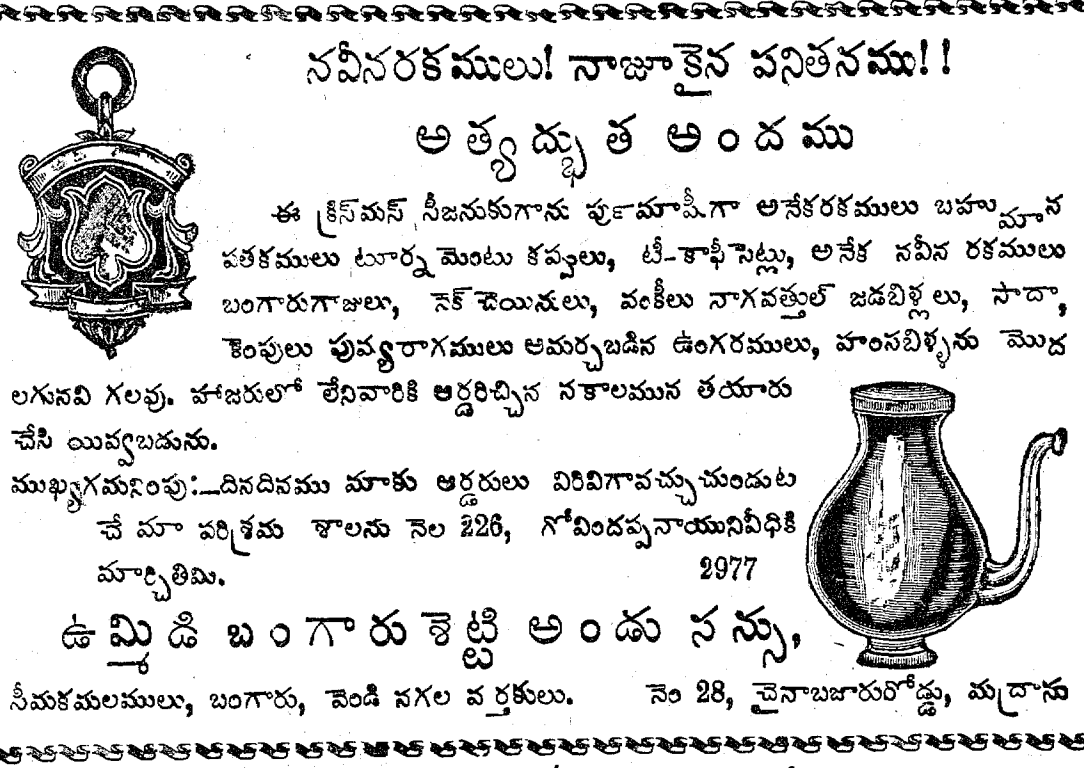 నవీనరకములు! నాజూకైన పనితనము!!
అత్యద్భుత అందము
ఈ క్రిస్‌మస్ సీజనుకుగాను పుణమాషీగా అనేకరకములు బహుమాన
పతకములు టూర్నమెంటు కప్పులు, టీ-కాఫీసెట్లు, అనేక నవీన రకములు
బంగారుగాజులు, నెక్ చెయినులు, వంకీలు నాగవత్తుల్ జడబిళ్లలు, సాదా,
కెంపులు పువ్యరాగములు అమర్చబడిన ఉంగరములు, హంసబిళ్ళను మొద
లగునవి గలవు. హాజరులో లేనివారికి ఆర్డరిచ్చిన సకాలమున తయారు
చేసి యివ్వబడును.
ముఖ్యగమనింపు:—దినదినము మాకు ఆర్డరులు విరివిగావచ్చుచుండుట
చే మా పరిశ్రమ శాలను నెల 226, గోవిందప్పనాయునివీధికి
మార్చితిమి. 2977
ఉమ్మిడి బంగారుశెట్టి అండు సన్సు,
సీమకమలములు, బంగారు, వెండి నగల వర్తకులు. నెం 28, చైనాబజారురోడ్డు, మద్రాసు